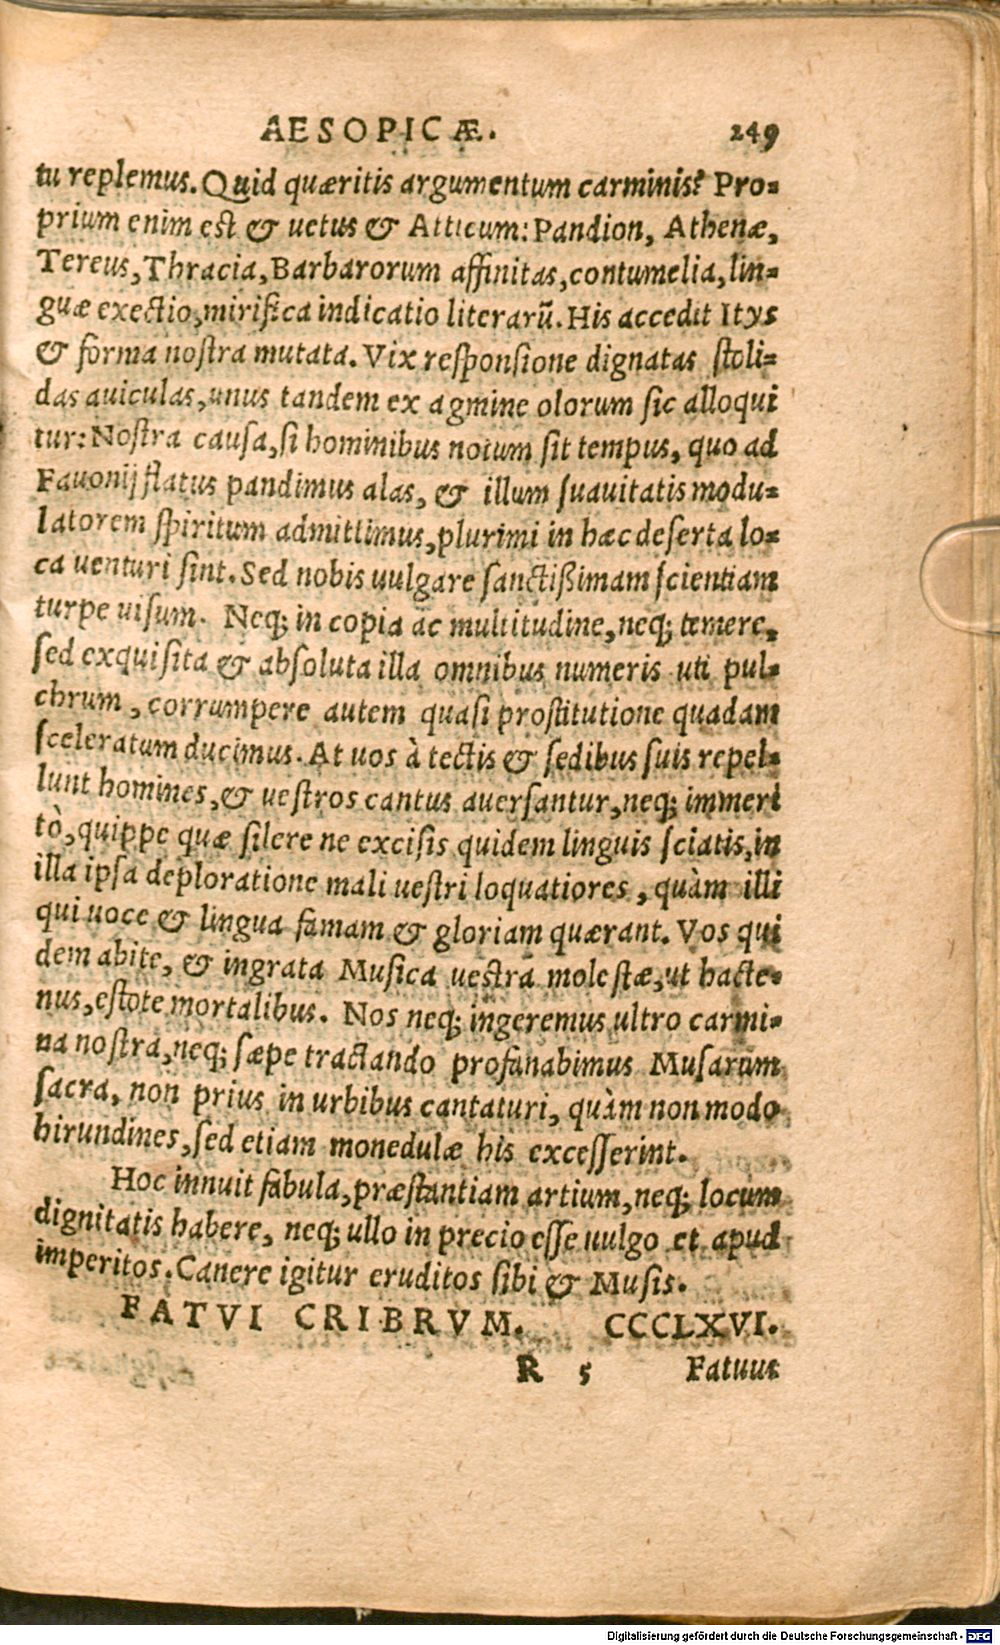 AESOPICÆ. 249
tu replemus. Quid quæritis argumentum carminis? Pro-
prium enim est & uetus & Atticum: Pandion, Athenæ,
Tereus, Thracia, Barbarorum affinitas, contumelia, lin-
guæ exectio, mirifica indicatio literarũ. His accedit Itys
& forma nostra mutata. Vix responsione dignatas stoli-
das auiculas, unus tandem ex agmine olorum sic alloqui
tur: Nostra causa, si hominibus notum sit tempus, quo ad
Fauonij flatus pandimus alas, & illum suauitatis modu-
latorem spiritum admittimus, plurimi in hæc deserta lo-
ca uenturi sint. Sed nobis uulgare sanctißimam scientiam
turpe uisum. Neq; in copia ac multitudine, neq; temere,
sed exquisita & absoluta illa omnibus numeris uti pul-
chrum, corrumpere autem quasi prostitutione quadam
sceleratum ducimus. At uos à tectis & sedibus suis repel-
lunt homines, & uestros cantus auersantur, neq; immeri
tò, quippe quæ silere ne excisis quidem linguis sciatis, in
illa ipsa deploratione mali uestri loquatiores, quàm illi
qui uoce & lingua famam & gloriam quærant. Vos qui
dem abite, & ingrata Musica uestra molestæ, ut hacte-
nus, estote mortalibus. Nos neq; ingeremus ultro carmi-
na nostra, neq; sæpe tractando profanabimus Musarum
sacra, non prius in urbibus cantaturi, quàm non modo
hirundines, sed etiam monedulæ his excesserint.
Hoc innuit fabula, præstantiam artium, neq; locum
dignitatis habere, neq; ullo in precio esse uulgo et apud
imperitos. Canere igitur eruditos sibi & Musis.
FATVI CRIBRVM. CCCLXVI.
R 5 Fatuus
Digitalisierung gefördert durch die Deutsche Forschungsgemeinschaft - DFG